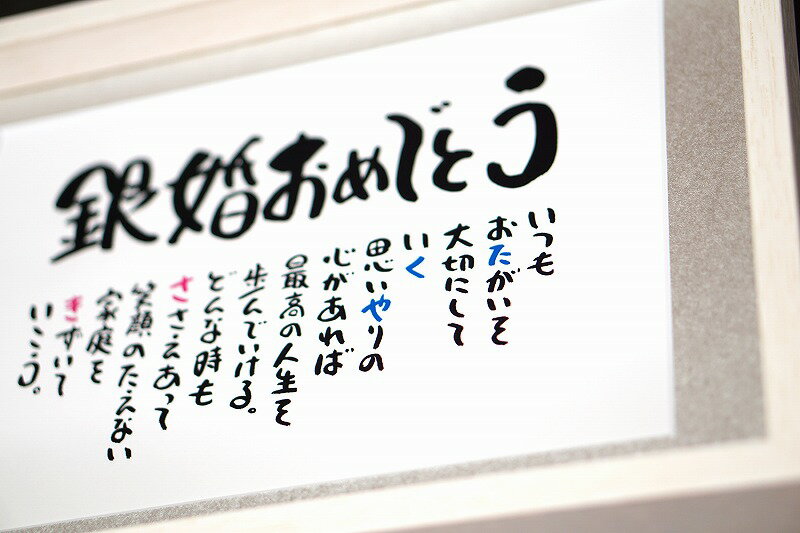 銀婚おめでとう
いつも
おたがいを
大切にして
いく
思いやりの
心があれば
最高の人生を
歩んでいける。
どんな時も
ささえあって
笑顔のたえない
家庭を
きずいて
いこう。